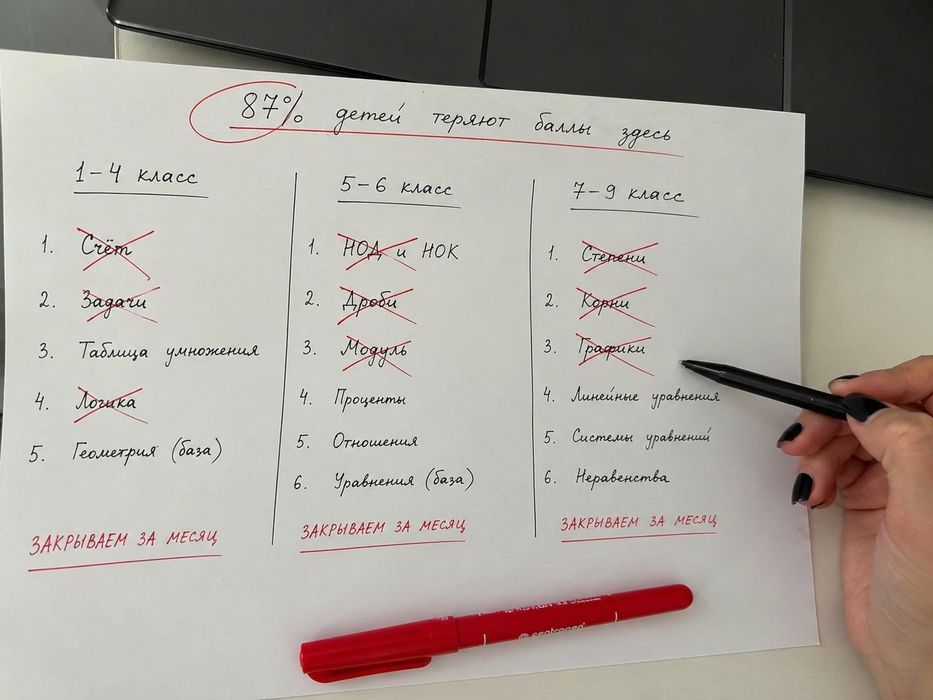 87% детей теряют баллы здесь
1-4 класс
1. Счёт
2. Задачи
3. Таблица умножения
4. Логика
5. Геометрия (база)
ЗАКРЫВАЕМ ЗА МЕСЯЦ
5-6 класс
1. НОД и НОК
2. Дроби
3. Модуль
4. Проценты
5. Отношения
6. Уравнения (база)
ЗАКРЫВАЕМ ЗА МЕСЯЦ
7-9 класс
1. Степени
2. Корни
3. Графики
4. Линейные уравнения
5. Системы уравнений
6. Неравенства
ЗАКРЫВАЕМ ЗА МЕСЯЦ